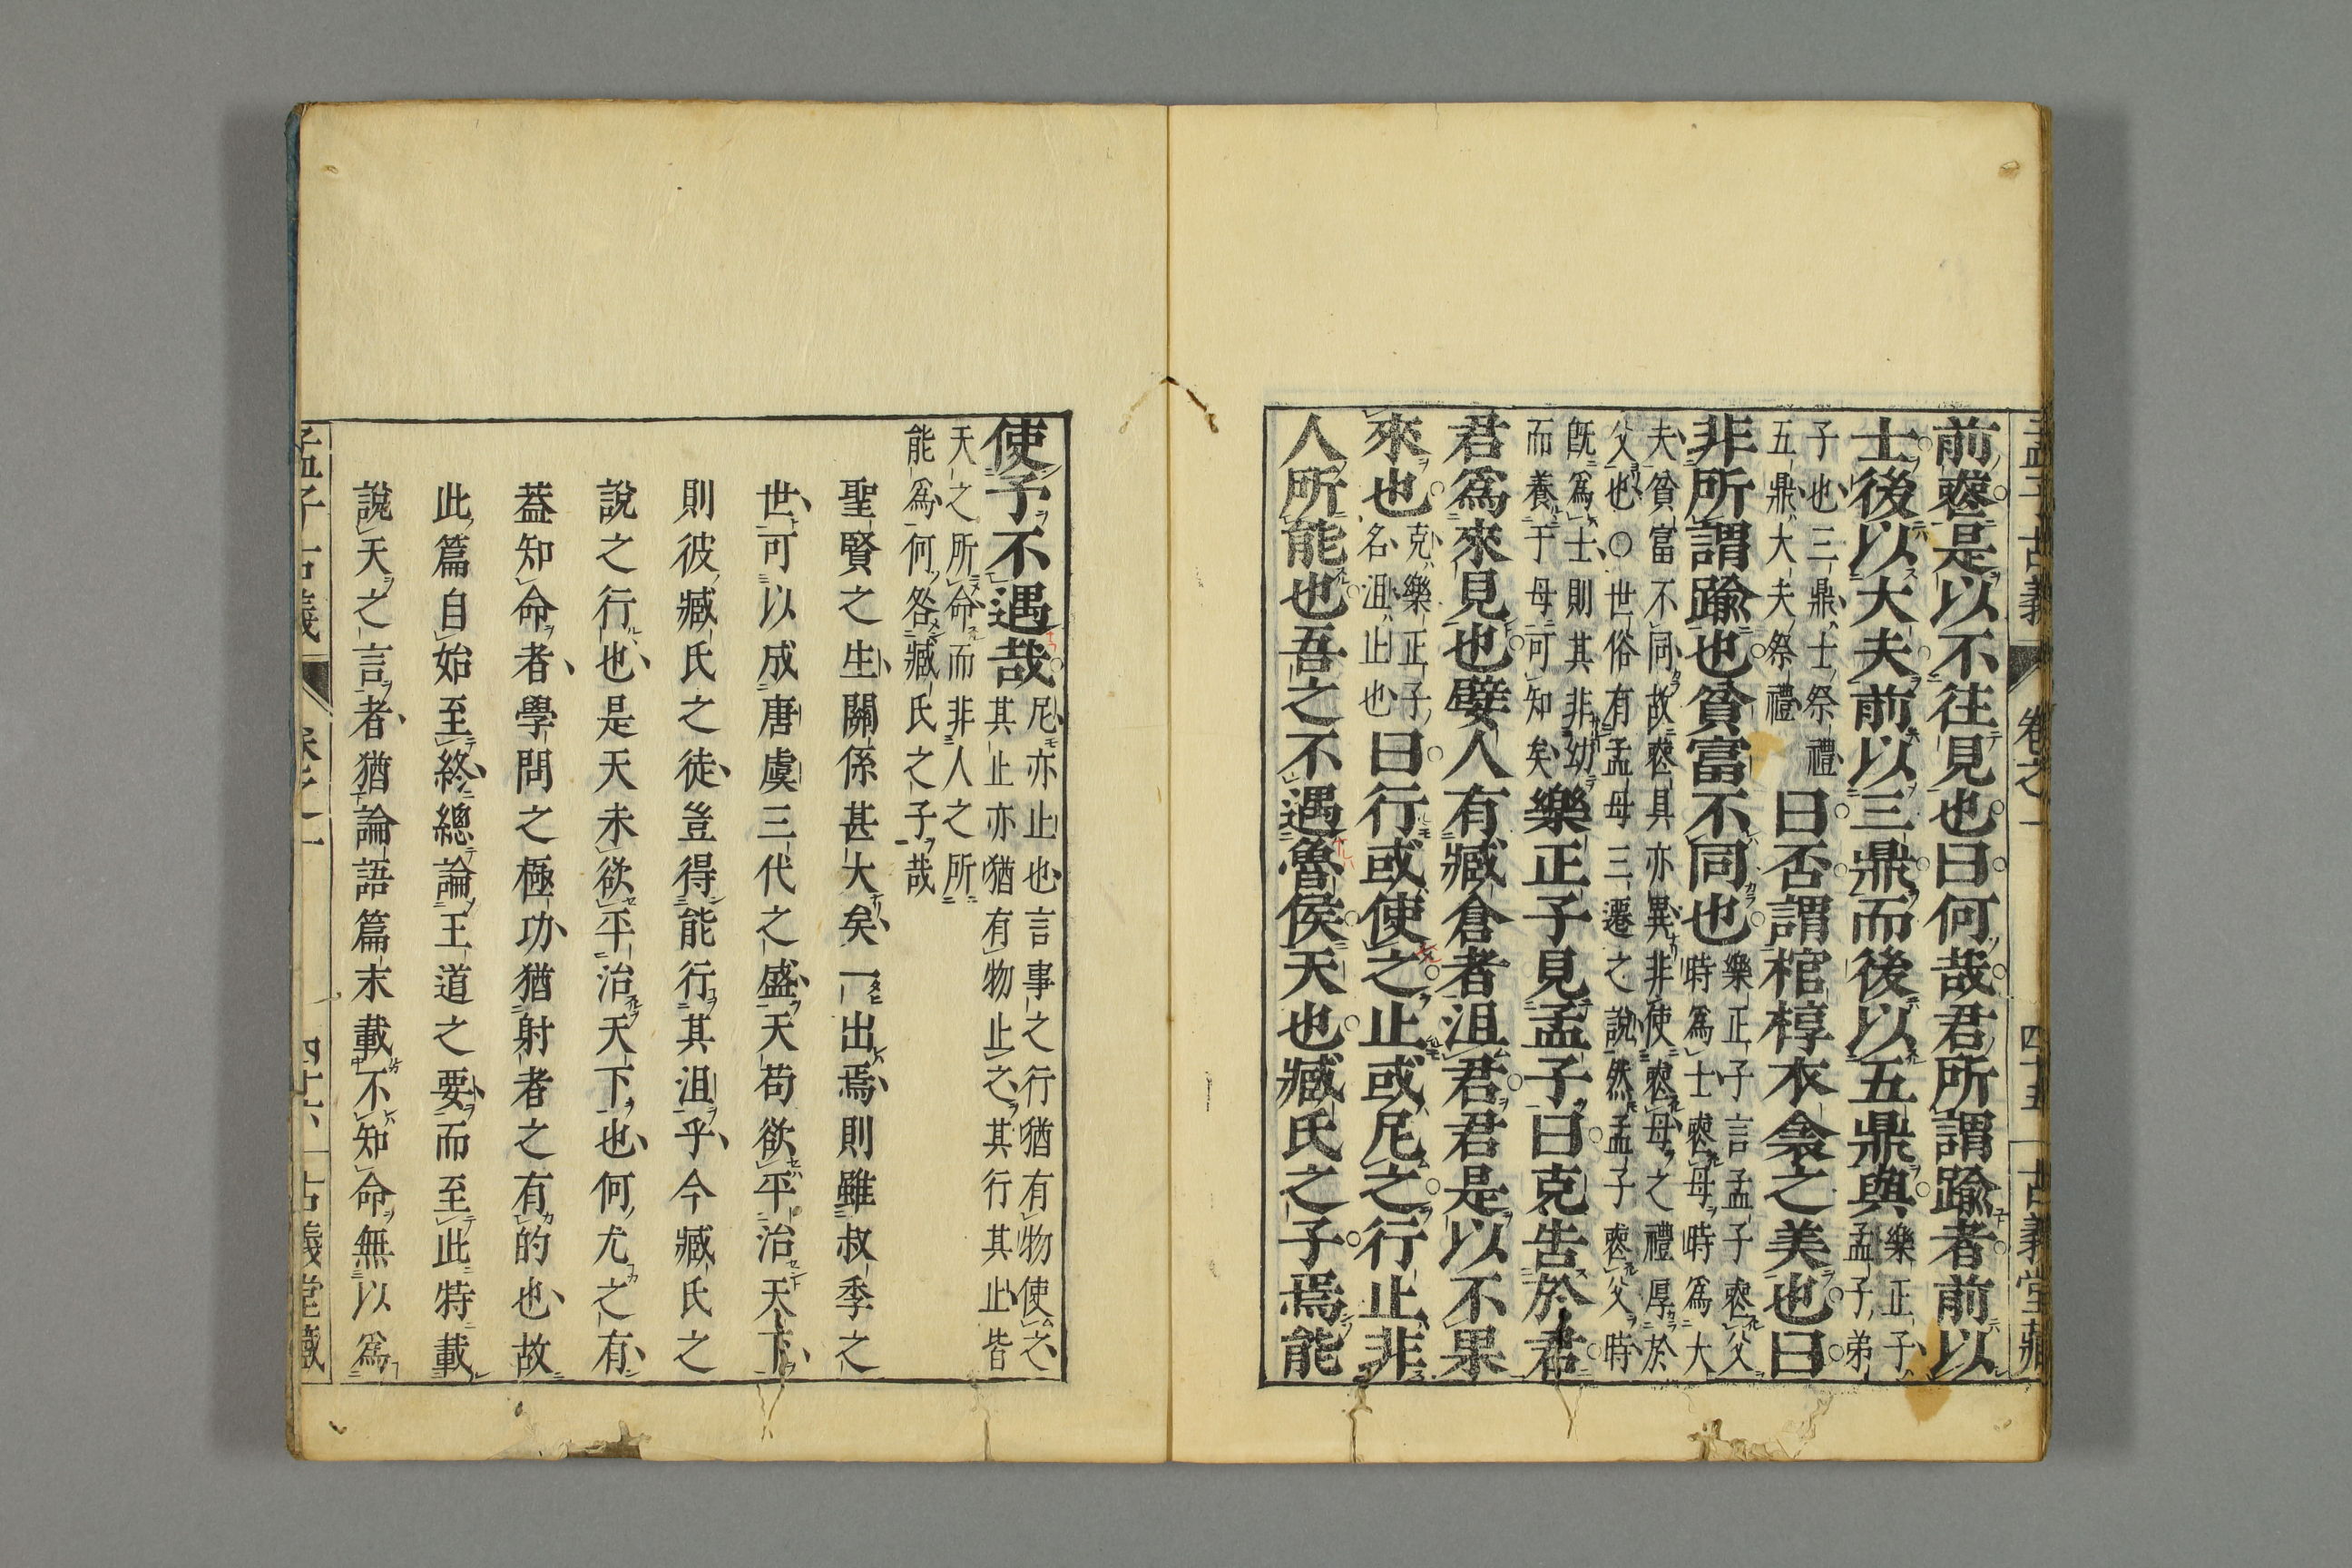 孟子古義 卷之一 四十五 古義堂藏
前喪是以不往見也曰何哉君所謂踰者前以
士後以大夫前以三鼎而後以五鼎與
樂正子
孟子弟
子也三鼎士祭禮
五鼎大夫祭禮
曰否謂棺椁衣衾之美也曰
非所謂踰也貧富不同也
樂正子言孟子喪父
時爲士喪母時爲大
夫貧富不同故喪具亦異非使喪母之禮厚於
父也○世俗有孟母三遷之說然孟子喪父時
既爲士則其非幼
而養于母可知矣
樂正子見孟子曰克告於君
君爲來見也嬖人有臧倉者沮君君是以不果
來也
克樂正子
名沮止也
曰行或使之止或尼之行止非
人所能也吾之不遇魯侯天也臧氏之子焉能
使予不遇哉
尼亦止也言事之行猶有物使之
其止亦猶有物止之其行其止皆
天之所命而非人之所
能爲何咎臧氏之子哉
聖賢之生關係甚大矣一出焉則雖叔季之
世可以成唐虞三代之盛天苟欲平治天下
則彼臧氏之徒豈得能行其沮乎今臧氏之
說之行也是天未欲平治天下也何尤之有
蓋知命者學問之極功猶射者之有的也故
此篇自始至終總論王道之要而至此特載
說天之言者猶論語篇末載不知命無以爲
孟子古義 卷之一 四十六 古義堂藏